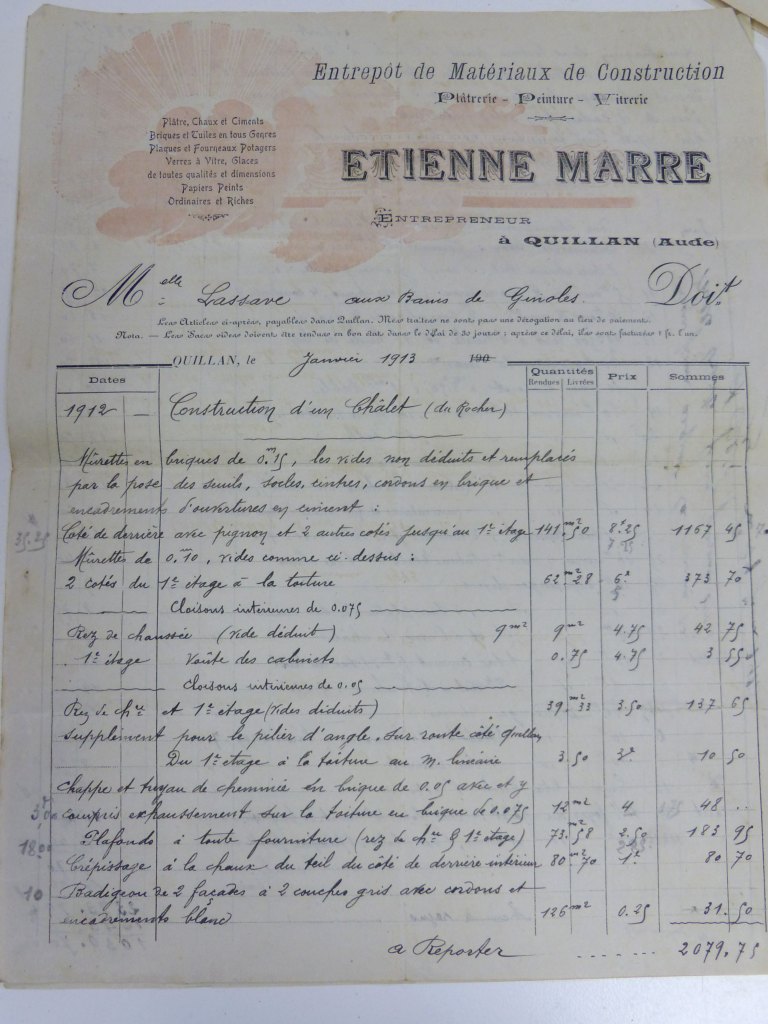 Entrepôt de Matériaux de Construction
Plâtrerie - Peinture - Vitrerie
Plâtre, Chaux et Ciments
Briques et Tuiles en tous Genres
Plaques et Fourneaux Potagers
Verres à Vitre, Glaces
de toutes qualités et dimensions
Papiers Peints
Ordinaires et Riches
ETIENNE MARRE
ENTREPRENEUR
à QUILLAN (Aude)
Melle Lassave aux Bains de Ginoles. Doit
Les Articles ci-après, payables dans Quillan. Mes traites ne sont pas une dérogation au lieu de paiement.
Nota. — Les Sacs vides doivent être rendus en bon état dans le délai de 30 jours; après ce délai, ils sont facturés 1 fr. l'un.
QUILLAN, le Janvier 1913 190
Dates Quantités Prix Sommes
Rendues Livrées
1912 — Construction d'un Châlet (du Rocher)
Mûrettes en briques de 0.m15, les vides non déduits et remplacés
par la pose des seuils, socles, cintres, cordons en brique et
encadrements d'ouvertures en ciment :
Coté de derrière avec pignon et 2 autres cotés jusqu'au 1er étage 141.m²50 8f.25 1167 45
Mûrettes de 0.m10, vides comme ci-dessus :
2 cotés du 1er étage à la toiture 62.m²28 6f 373 70
Cloisons intérieures de 0.075
Rez de chaussée (vide déduit) 9m² 9m² 4.75 42 75
1er étage Voûte des cabinets 0.75 4.75 3 55
Cloisons intérieures de 0.05
Rez de chée et 1er étage (vides déduits) 39.m²33 3.50 137 65
Supplément pour le pilier d'angle, sur route côté Quillan
Du 1er étage à la toiture au m. linéaire 3.50 3f 10 50
Chappe et tuyau de cheminée en brique de 0.05 avec et y
compris exhaussement sur la toiture en brique de 0.075 12m² 4 48 ..
Plafonds à toute fourniture (rez de chée & 1er étage) 73.m²58 2.50 183 95
Crépissage à la chaux du teil du côté de derrière intérieur 80.m²70 1f 80 70
Badigeon de 2 façades à 2 couches gris avec cordons et
encadrements blanc 126m² 0.25 31.50
a Reporter ...... 2079.75